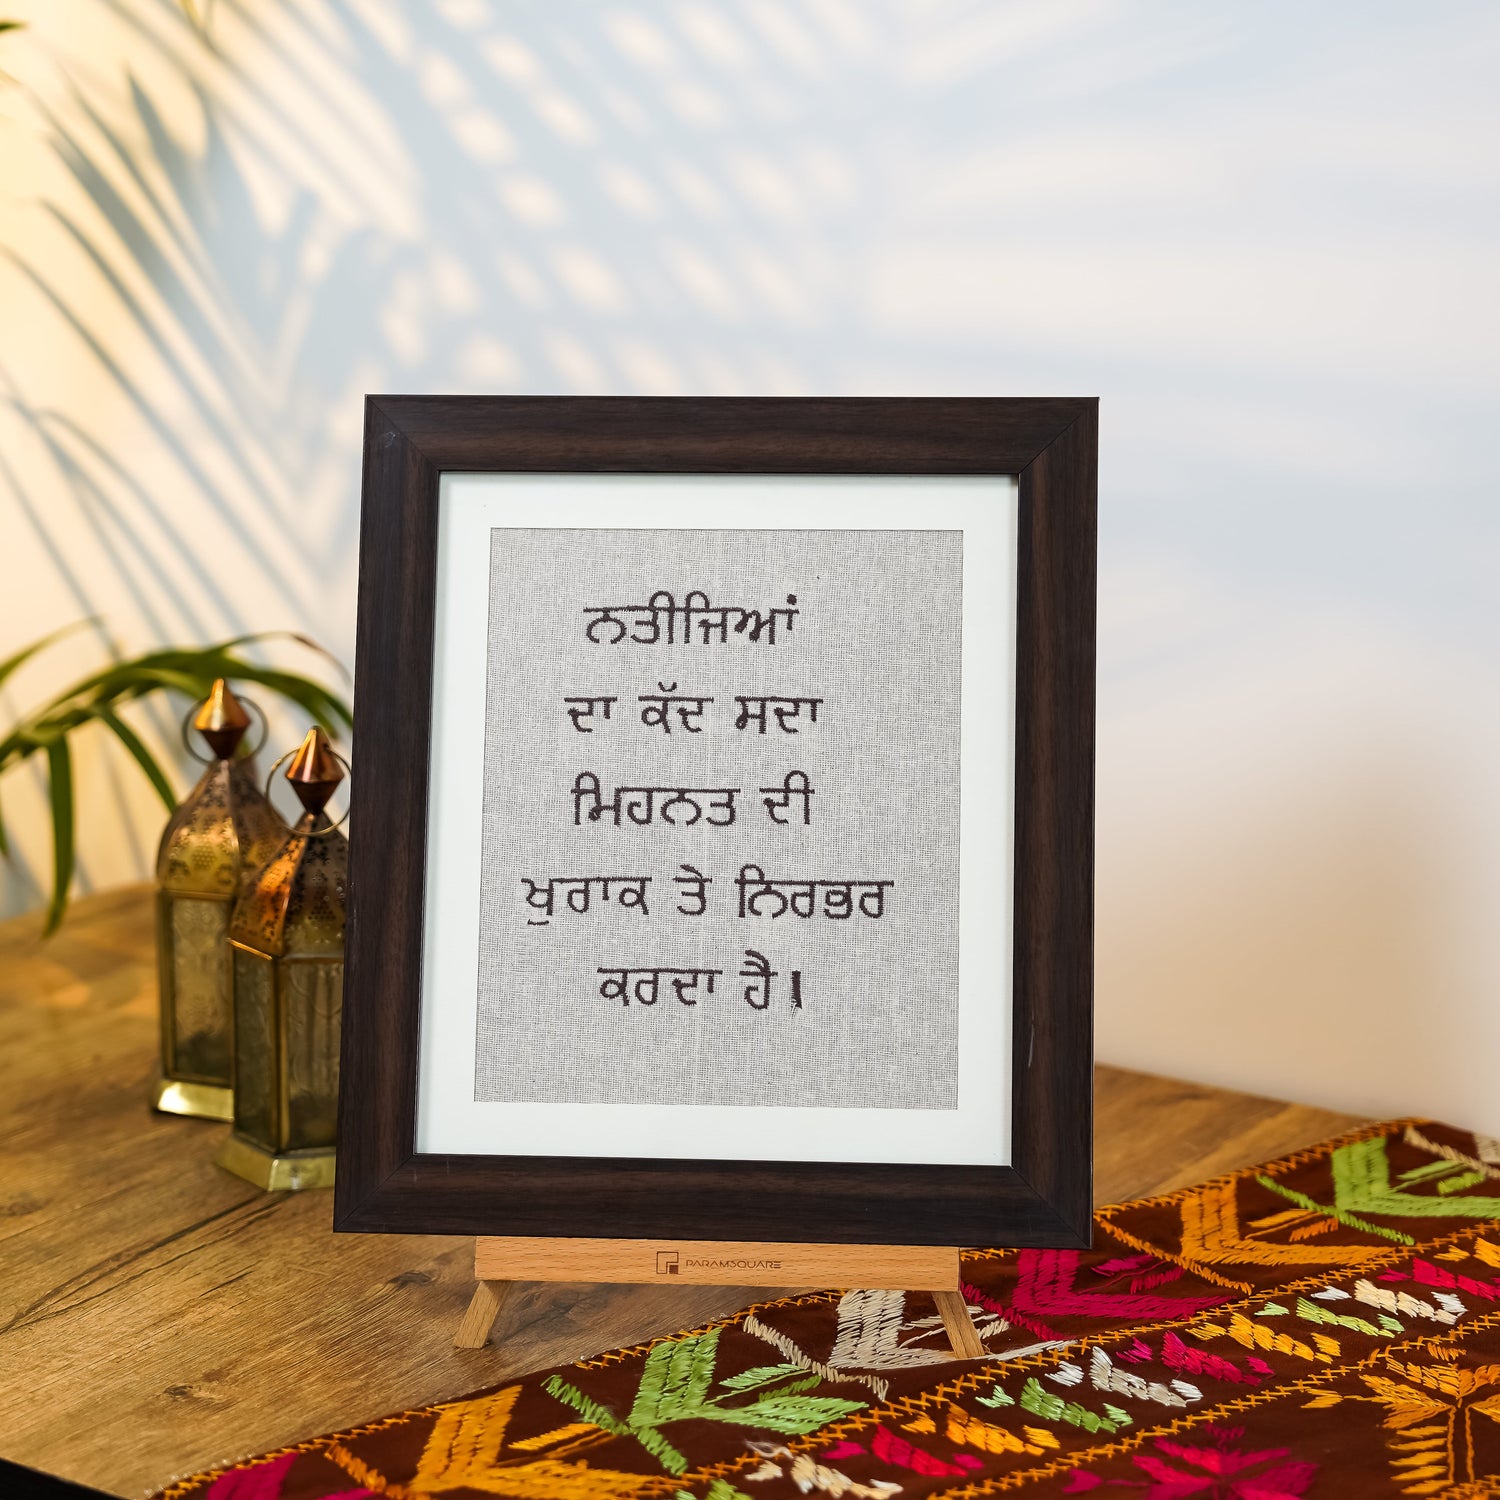 ਨਤੀਜਿਆਂ
ਦਾ ਕੱਦ ਸਦਾ
ਮਿਹਨਤ ਦੀ
ਖੁਰਾਕ ਤੇ ਨਿਰਭਰ
ਕਰਦਾ ਹੈ।
PARAMSQUARE